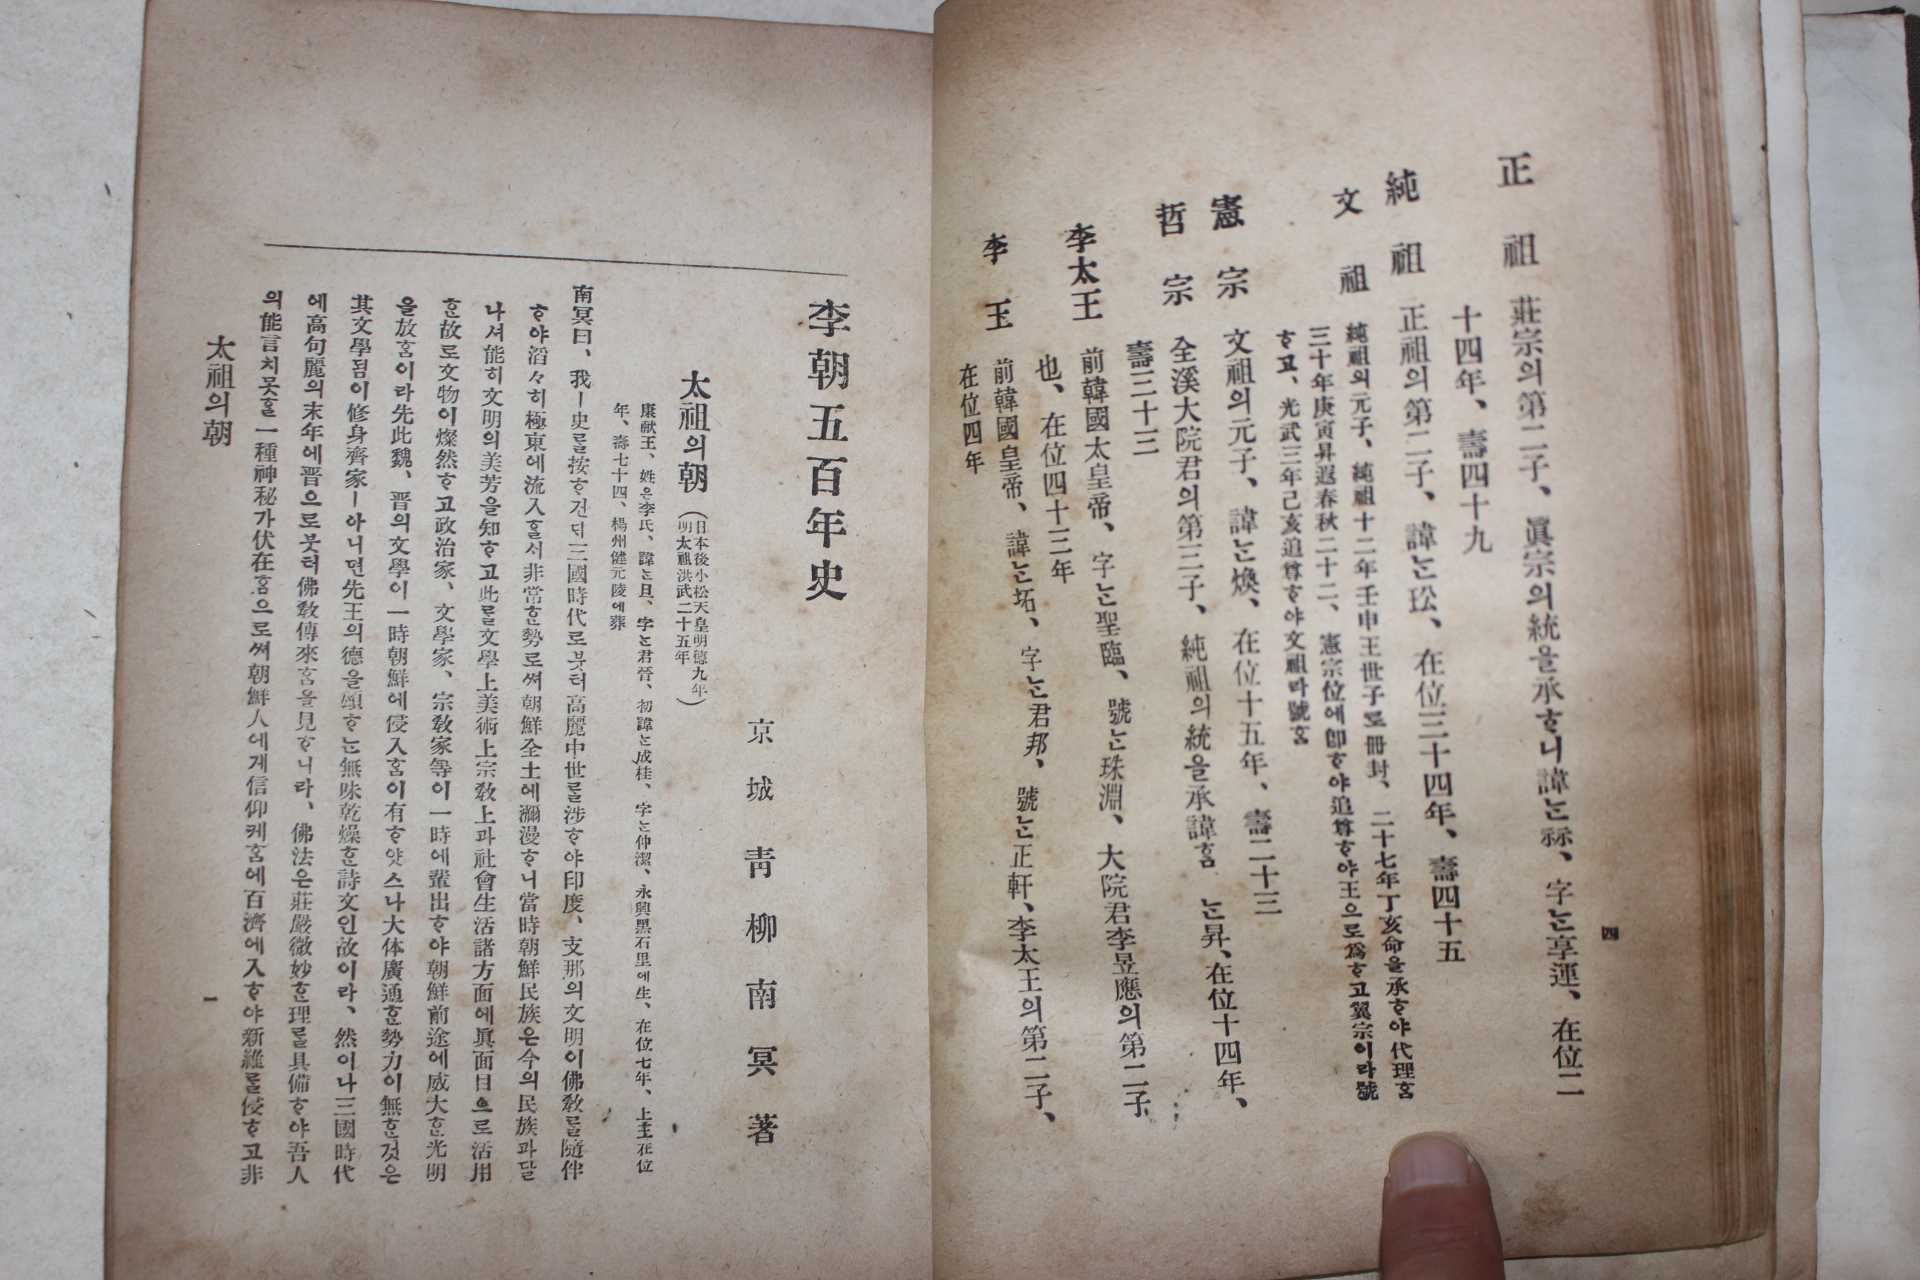 正祖 莊宗의第二子、眞宗의統을承ᄒᆞ니諱ᄂᆞᆫ祘、字ᄂᆞᆫ享運、在位二
十四年、壽四十九
純祖 正祖의第二子、諱ᄂᆞᆫ玜、在位三十四年、壽四十五
文祖 純祖의元子、純祖十二年壬申王世子로冊封、二十七年丁亥命을承ᄒᆞ야代理ᄒᆞᆷ
三十年庚寅昇遐春秋二十二、憲宗位에卽ᄒᆞ야追尊ᄒᆞ야王으로爲ᄒᆞ고翼宗이라號
ᄒᆞ고、光武三年己亥追尊ᄒᆞ야文祖라號ᄒᆞᆷ
憲宗 文祖의元子、諱ᄂᆞᆫ煥、在位十五年、壽二十三
哲宗 全溪大院君의第三子、純祖의統을承諱ᄒᆞᆷ ᄂᆞᆫ昇、在位十四年、
壽三十三
李太王 前韓國太皇帝、字ᄂᆞᆫ聖臨、號ᄂᆞᆫ珠淵、大院君李昰應의第二子
也、在位四十三年
李王 前韓國皇帝、諱ᄂᆞᆫ坧、字ᄂᆞᆫ君邦、號ᄂᆞᆫ正軒、李太王의第二子、
在位四年
四
李朝五百年史
京城 靑柳南冥 著
太祖의朝(日本後小松天皇明德九年
明太祖洪武二十五年)
康献王、姓은李氏、諱ᄂᆞᆫ旦、字ᄂᆞᆫ君晉、初諱ᄂᆞᆫ成桂、字ᄂᆞᆫ仲潔、永興黑石里에生、在位七年、上王在位
年、壽七十四、楊州健元陵에葬
南冥曰、我ㅣ史ᄅᆞᆯ按ᄒᆞ건ᄃᆡ三國時代로붓터高麗中世ᄅᆞᆯ涉ᄒᆞ야印度、支那의文明이佛敎ᄅᆞᆯ隨伴
ᄒᆞ야滔々히極東에流入ᄒᆞᆯᄉᆡ非常ᄒᆞᆫ勢로써朝鮮全土에瀰漫ᄒᆞ니當時朝鮮民族은今의民族과달
나셔能히文明의美芳을知ᄒᆞ고此ᄅᆞᆯ文學上美術上宗敎上과社會生活諸方面에眞面目으로活用
ᄒᆞᆫ故로文物이燦然ᄒᆞ고政治家、文學家、宗敎家等이一時에輩出ᄒᆞ야朝鮮前途에威大ᄒᆞᆫ光明
을放ᄒᆞᆷ이라先此魏、晋의文學이一時朝鮮에侵入ᄒᆞᆷ이有ᄒᆞ얏스나大体廣通ᄒᆞᆫ勢力이無ᄒᆞᆫ것은
其文學됨이修身齊家ㅣ아니면先王의德을頌ᄒᆞᄂᆞᆫ無味乾燥ᄒᆞᆫ詩文인故이라、然이나三國時代
에高句麗의末年에晋으로붓터佛敎傳來ᄒᆞᆷ을見ᄒᆞ니라、佛法은莊嚴微妙ᄒᆞᆫ理ᄅᆞᆯ具備ᄒᆞ야吾人
의能言치못ᄒᆞᆯ一種神秘가伏在ᄒᆞᆷ으로써朝鮮人에게信仰케ᄒᆞᆷ에百濟에入ᄒᆞ야新羅ᄅᆞᆯ侵ᄒᆞ고非
太祖의朝
一